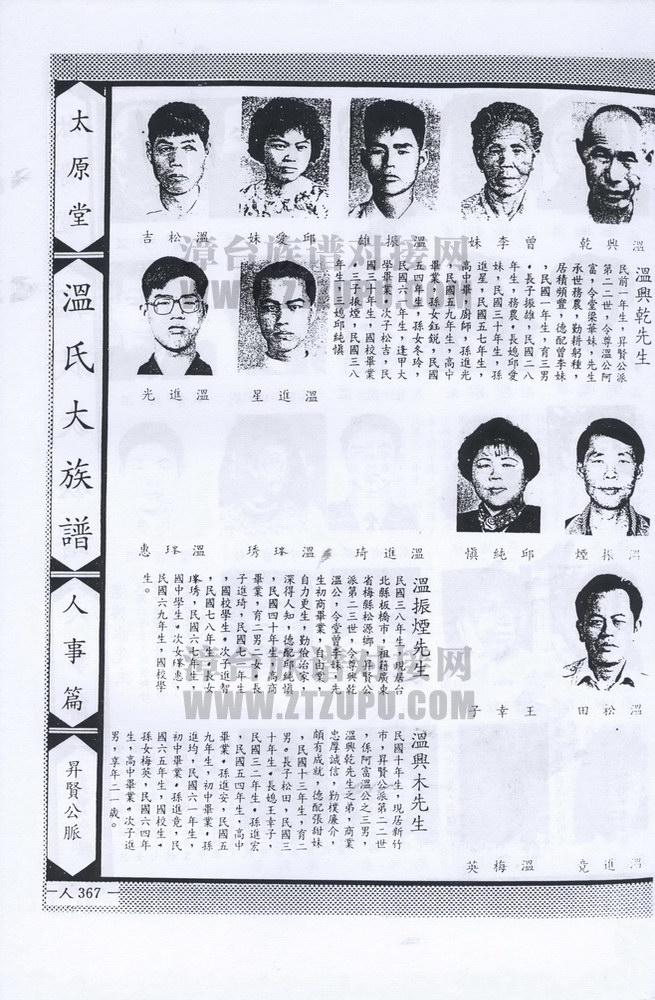 太原堂
溫氏大族譜
人事篇
昇賢公脈
人367
溫興乾
曾李妹
溫振雄
邱愛妹
溫松吉
溫興乾先生
民前一年生，昇賢公派
第二二世，令尊溫公阿
富，令堂梁華妹，先生
承世務農，勤耕躬種，
居積頻豐，德配曾李妹
，民國一年生，育三男
。長子振雄，民國二八
年生，務農。長媳邱愛
妹，民國三十年生，孫
進星，民國五七年生，
高中畢，廚師，孫進光
，民國五九年生，高中
畢業，孫女鈺銳，民國
五四年生，孫女冬玲，
民國六一年生，逢甲大
學畢業，次子松吉，民
國三十年生，國校畢業
，三子振煙，民國三八
年生，三媳邱純慎
溫進星
溫進光
溫振煙
邱純慎
溫進琦
溫琇
溫惠
溫振煙先生
民國三八年生，現居台
北縣板橋市，祖籍廣東
省梅縣松源鄉，昇賢公
派第二三世，令尊興乾
溫公，令堂曾李妹，先
生初商畢業，自由業，
自力更生，勤儉治家，
深得人知，德配邱純慎
，民國四十年生，高商
畢業，育二男二女，長
子進琦，民國七一年生
，國校學生。次子進智
，民國七八年生，長女
琇，民國六七年生，
國中學生。次女惠，
民國六九年生，國校學
生。
溫松田
王幸子
溫興木先生
民國十年生，現居新竹
市，昇賢公派第二二世
，係阿富溫公之三男，
溫興乾先生之弟，商業
忠厚誠信，勤樸廉介，
頗有成就，德配張甜妹
，民國十三年生，育二
男。長子松田，民國三
十年生。長媳王幸子，
民國三二年生。孫進宏
，民國五四年生，高中
畢業。孫進安，民國五
九年生，初中畢業。孫
進均，民國六一年生，
初中畢業。孫進竟，民
國六五年生，國校生。
孫女梅英，民國六四年
生，高中畢業。次子進
男，享年二一歲。
溫進竟
溫梅英
漳台族谱对接网
WWW.ZTZUPU.COM
漳台族谱对接网
WWW.ZTZUPU.COM